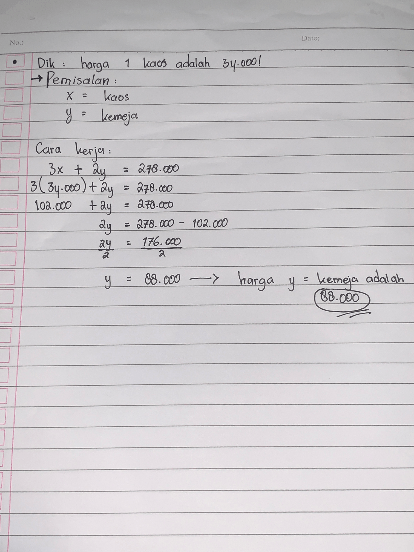 No.:
Date:
• Dik : harga 1 kaos adalah 34.000!
→ Pemisalan :
x = kaos
y = kemeja
Cara kerja :
3x + 2y = 278.000
3(34.000) + 2y = 278.000
102.000 + 2y = 278.000
2y = 278.000 - 102.000
2y/2 = 176.000/2
y = 88.000 —> harga y = kemeja adalah
88.000